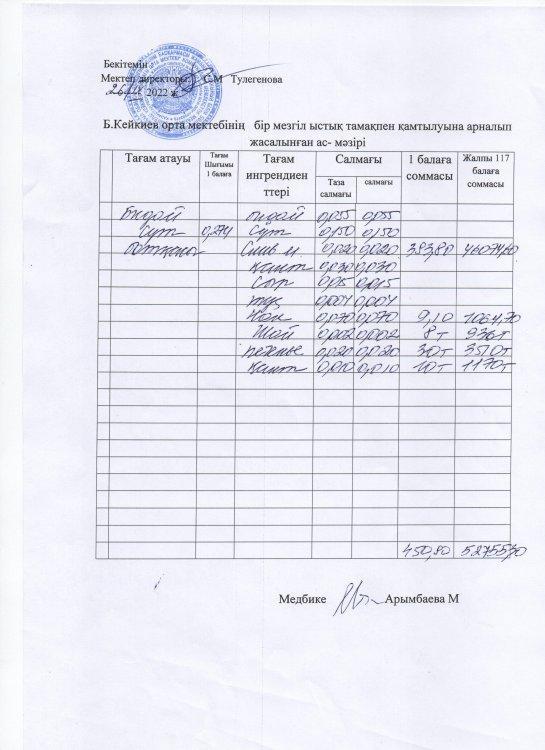 Бекітемін
Мектеп директоры: С.М Тулегенова
2022 ж
Б.Кейкиев орта мектебінің бір мезгіл ыстық тамақпен қамтылуына арналып
жасалынған ас- мәзірі
Тағам атауы Тағам Шығымы 1 балаға Тағам ингрендиен ттері Салмағы 1 балаға соммасы Жалпы 117 балаға соммасы
Таза салмағы салмағы
бидай бидай 0,055 0,055
сүт 0,274 Сүт 0,150 0,150
ботқасы Слив м 0,020 0,020 393,80
қант 0,030 0,030
Сыр 0,015
тұз 0,004 0,004
Нан 0,070 0,070 9,10 1064,70
Шай 0,002 0,002 8т 936т
печенье 0,020 0,020 30т 3510т
Қант 0,010 0,010 10т 1170т
450,90 52755,30
Медбике Арымбаева М